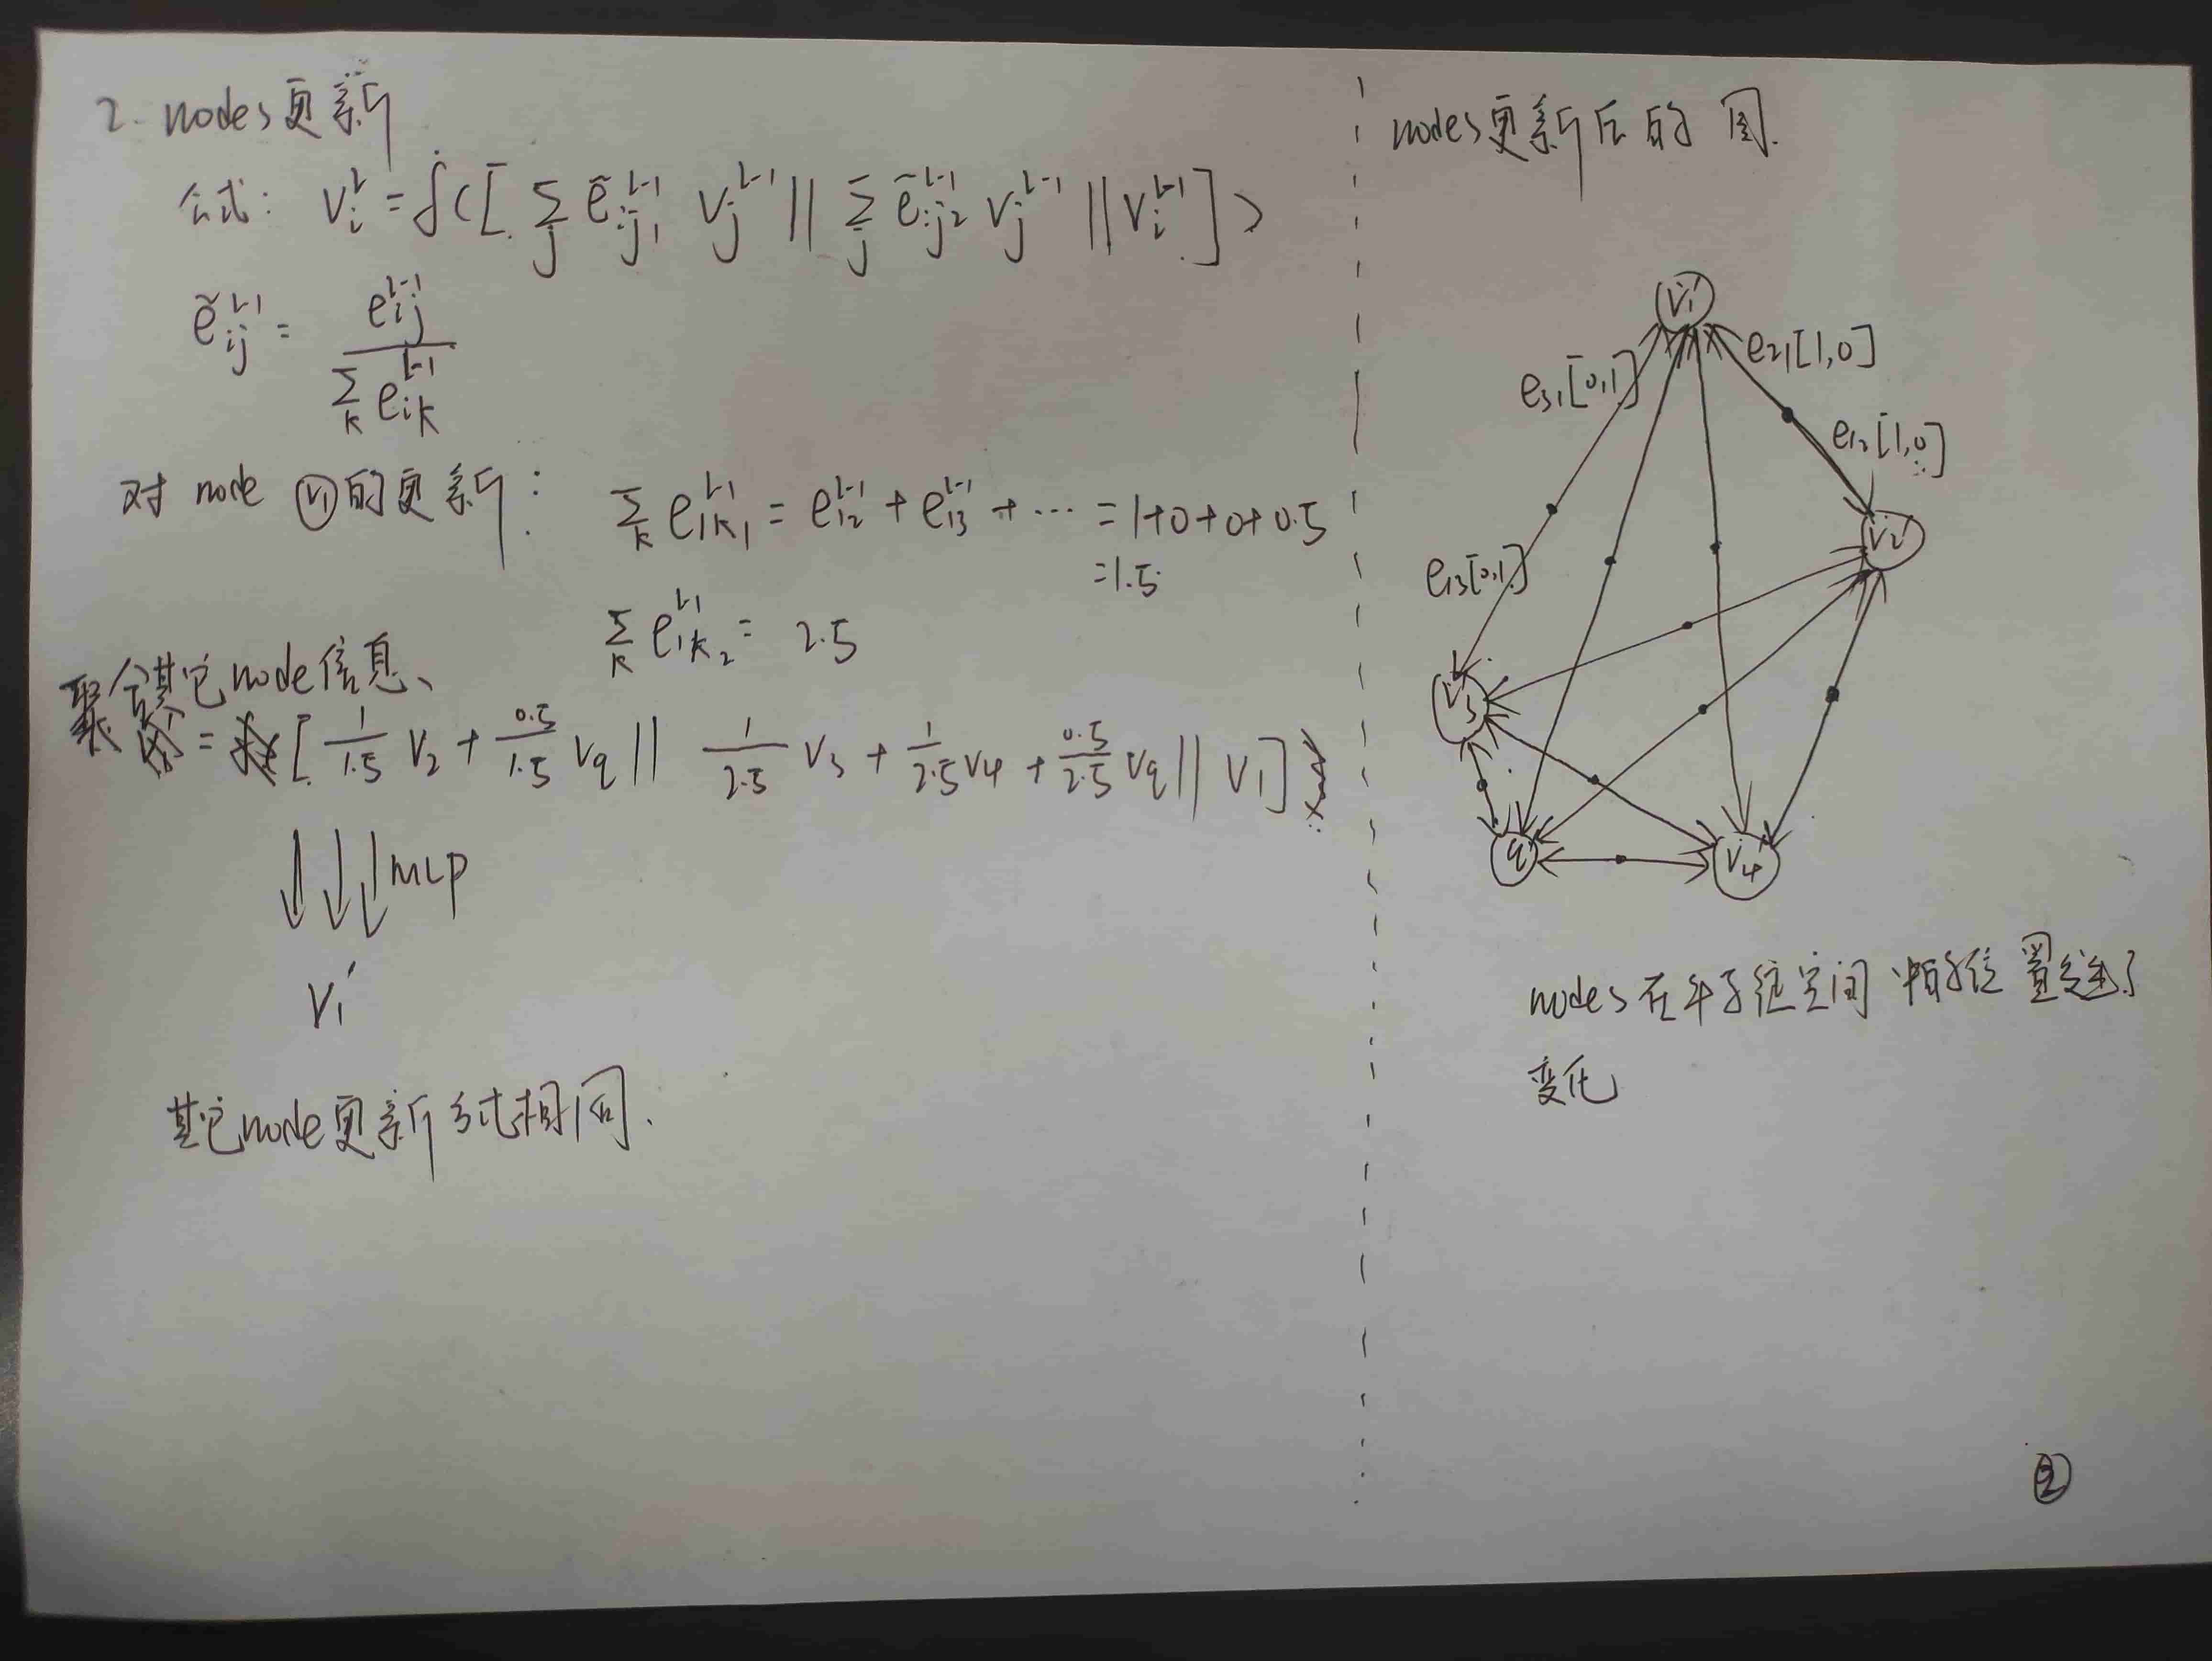 2. nodes更新
公式: vᵢˡ = f([ Σⱼ ẽᵢⱼ₁ˡ⁻¹ vⱼˡ⁻¹ || Σⱼ ẽᵢⱼ₂ˡ⁻¹ vⱼˡ⁻¹ || vᵢˡ⁻¹ ])
ẽᵢⱼˡ⁻¹ = eᵢⱼˡ⁻¹ / Σₖ eᵢₖˡ⁻¹
对 node v₁ 的更新: Σₖ e₁ₖ₁ˡ⁻¹ = e₁₂ˡ⁻¹ + e₁₃ˡ⁻¹ + ··· = 1+0+0+0.5
=1.5
Σₖ e₁ₖ₂ˡ⁻¹ = 2.5
聚合其它node信息、
= [ 1/1.5 v₂ + 0.5/1.5 vq || 1/2.5 v₃ + 1/2.5 v₄ + 0.5/2.5 vq || v₁ ]
MLP
v₁'
其它node更新方式相同.
nodes更新后的图.
v₁'
e₂₁[1,0]
e₃₁[0,1]
e₁₂[1,0]
v₂'
e₁₃[0,1]
v₃'
q'
v₄'
nodes在 空间 位置发生了
变化
②